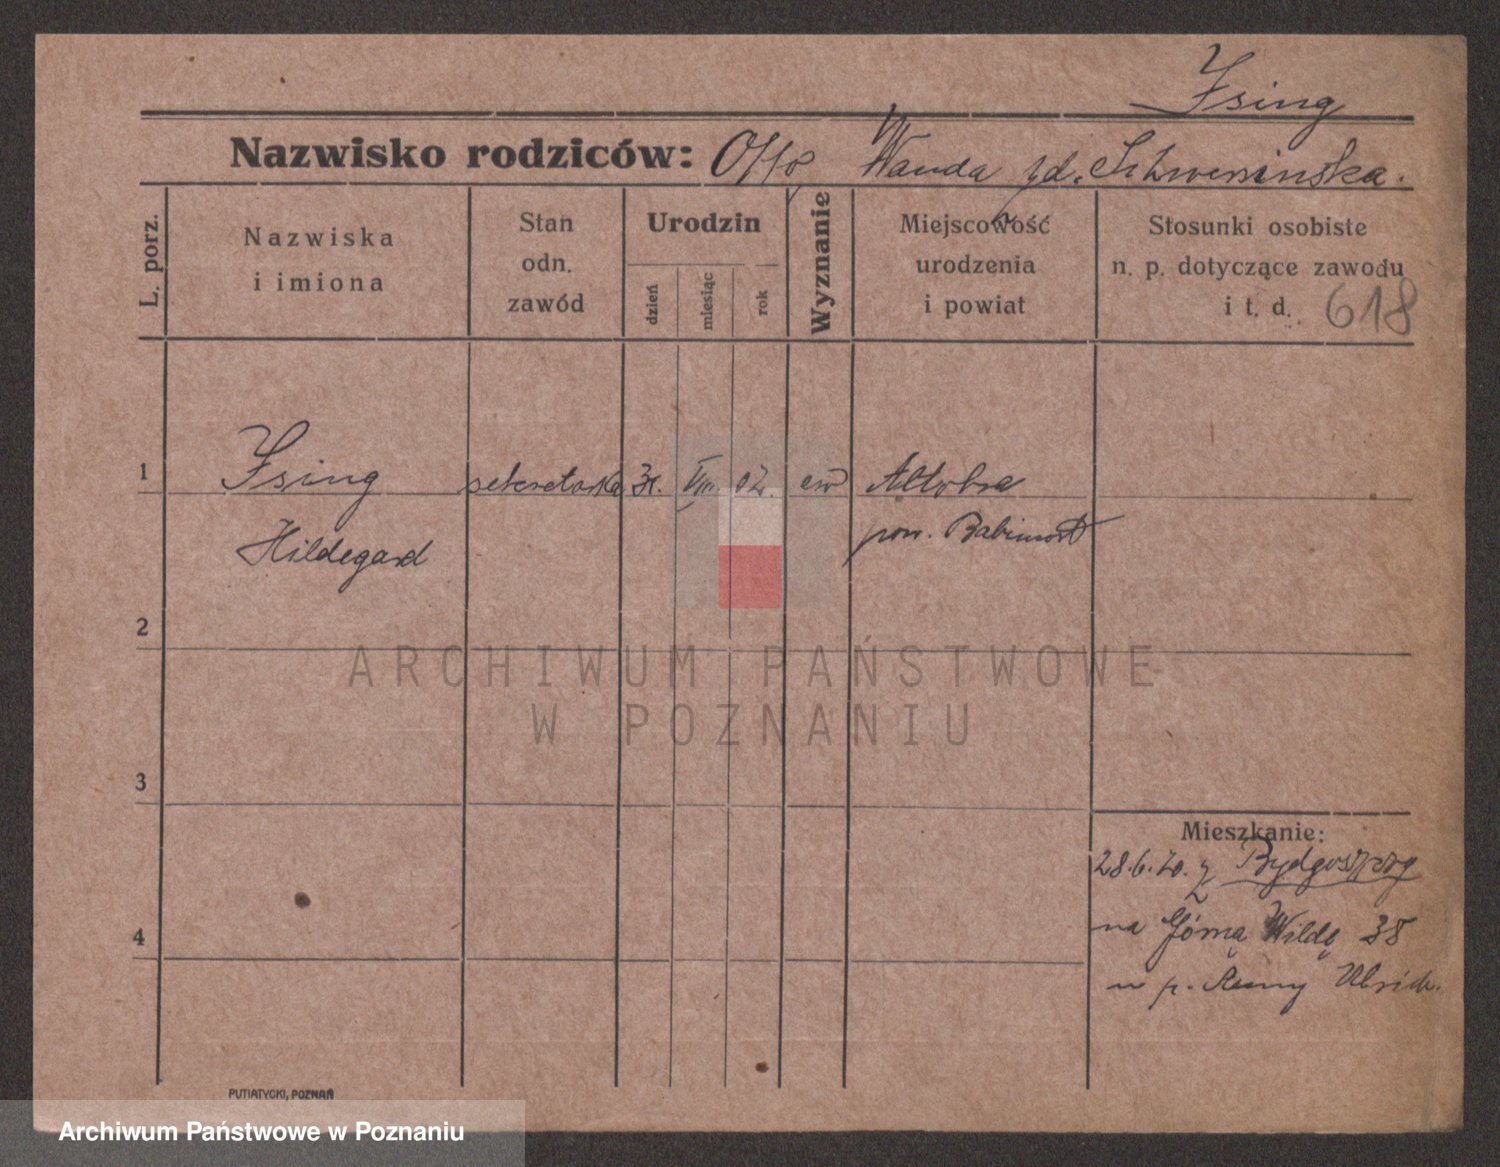 Ising
Nazwisko rodziców: Otto Wanda zd.
L. porz.
Nazwiska
i imiona
Stan
odn.
zawód
Urodzin
dzień
miesiąc
rok
Wyznanie
Miejscowość
urodzenia
i powiat
Stosunki osobiste
n. p. dotyczące zawodu
i t. d. 618
1 Ising sekretarka 31. VIII. 02. ew
pow. Babimost
Hildegard
2
ARCHIWUM PAŃSTWOWE
W POZNANIU
3
Mieszkanie:
28.6.20. z Bydgoszczy
4
na Górną Wildę 38
u p.
PUTIATYCKI, POZNAŃ
Archiwum Państwowe w Poznaniu